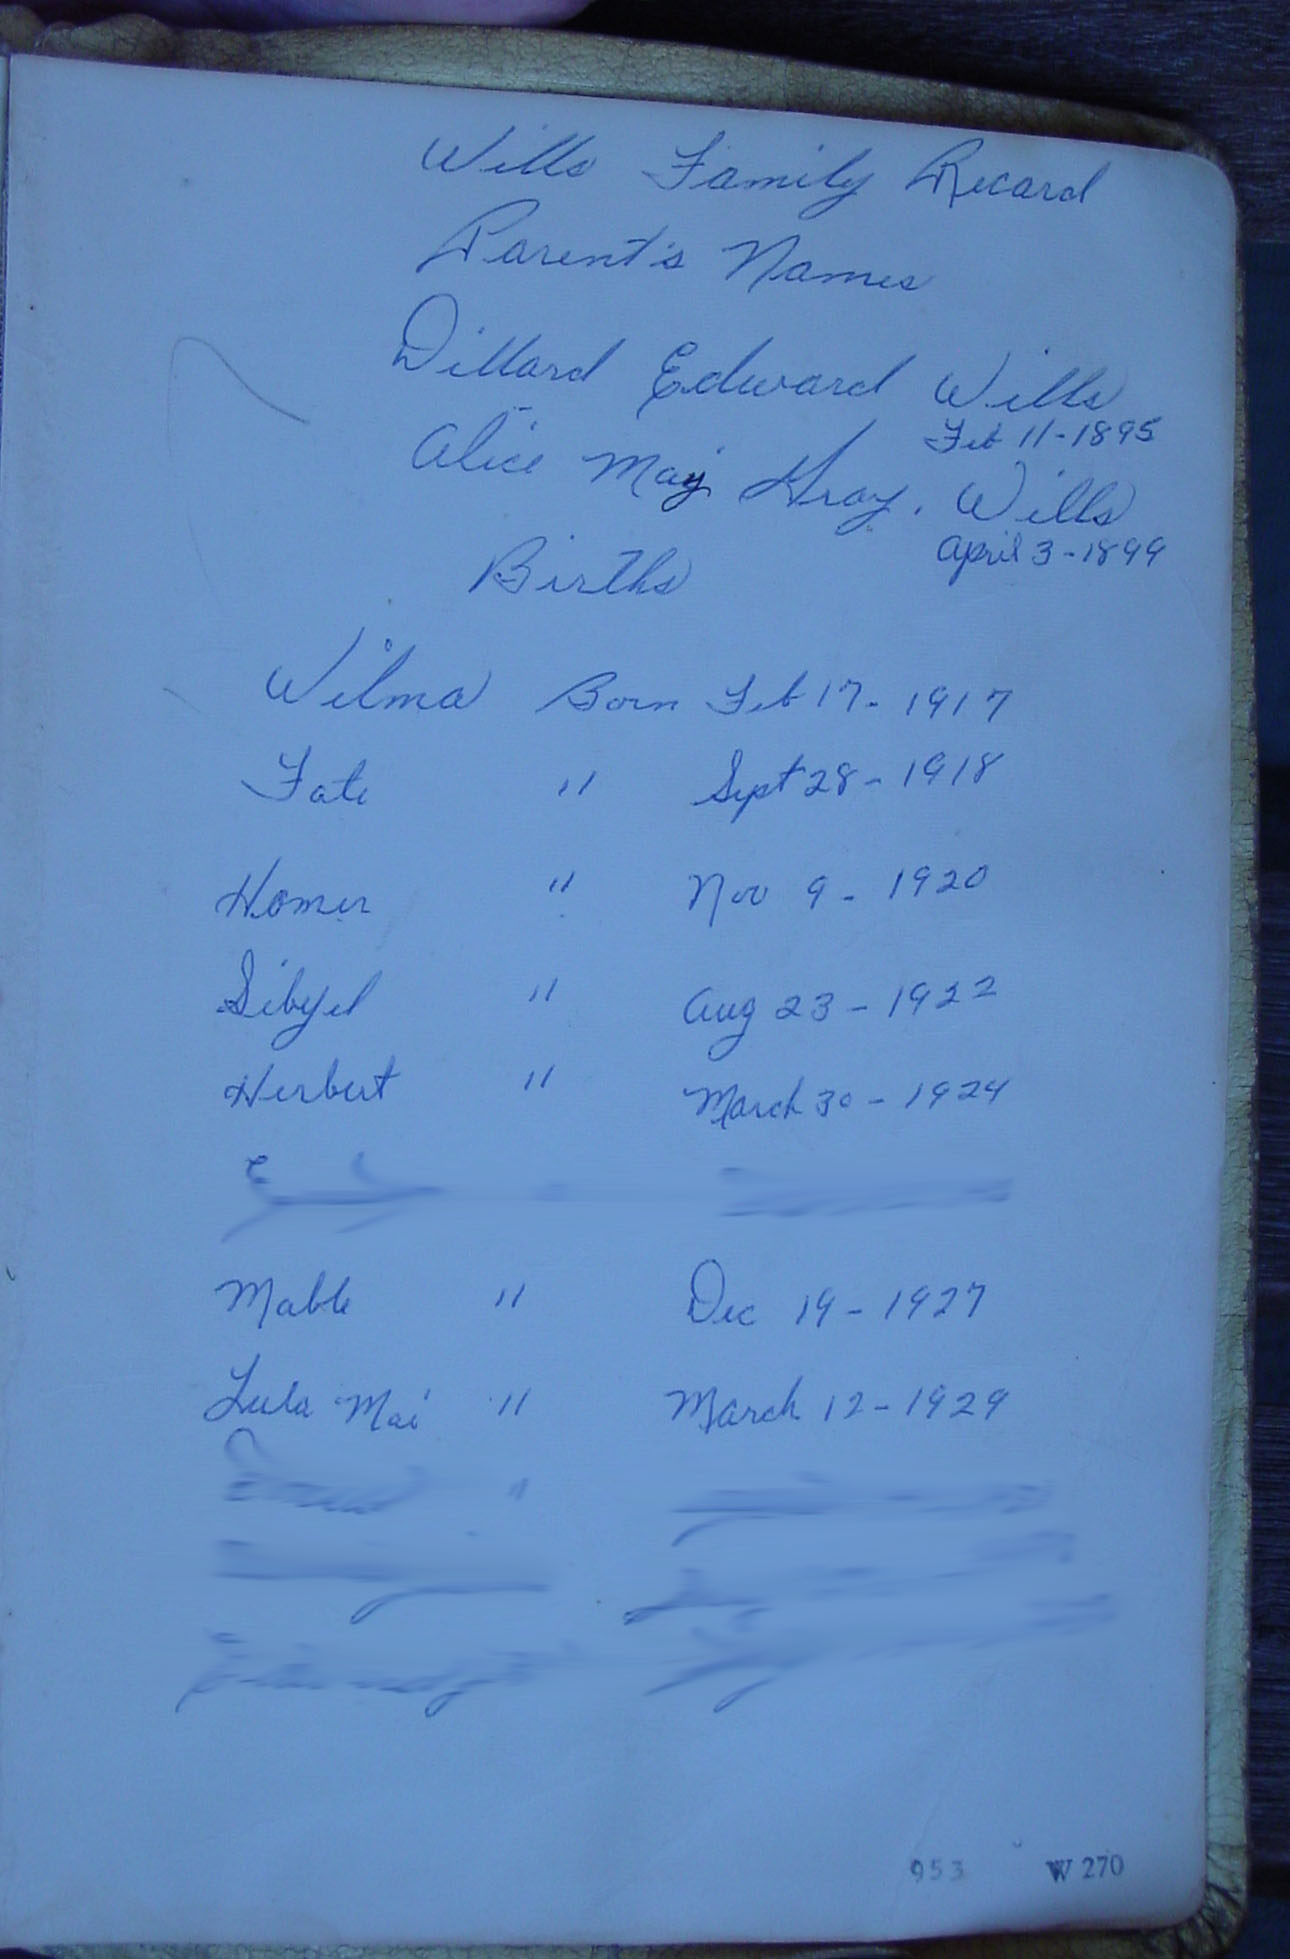 Wills Family Record
Parent's Names
Dillard Edward Wills
Feb 11-1895
Alice May Gray. Wills
April 3-1899
Births
Wilma Born Feb 17-1917
Fate " Sept 28-1918
Homer " Nov 9-1920
Sibyel " Aug 23-1922
Herbert " March 30-1924
Mable " Dec 19-1927
Lula Mai " March 12-1929
953 W 270